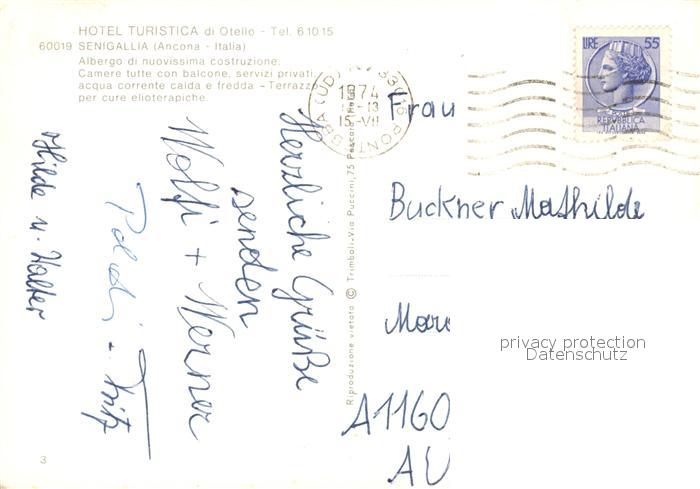 HOTEL TURISTICA di Otello - Tel. 61015
60019 SENIGALLIA (Ancona - Italia)
Albergo di nuovissima costruzione.
Camere tutte con balcone, servizi privati,
acqua corrente calda e fredda - Terrazzo
per cure elioterapiche.
Herzliche Grüße
senden
Wolfi + Werner
Fritz
Hilde u. Walter
3
Riproduzione vietata © Trimboli - Via Puccini, 75 Pescara
33016 PONTEBBA (UD)
1974
15-VII
LIRE 55
REPVBBLICA
ITALIANA
Frau
Buckner Mathilde
A1160
AU
privacy protection
Datenschutz